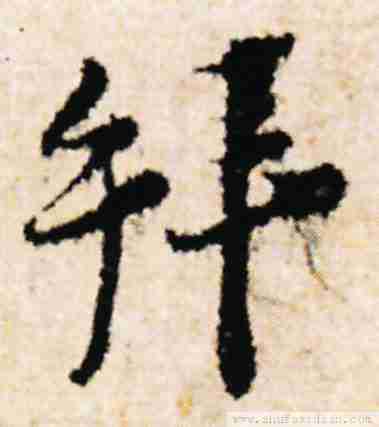 拜
www.shufaxidian.com